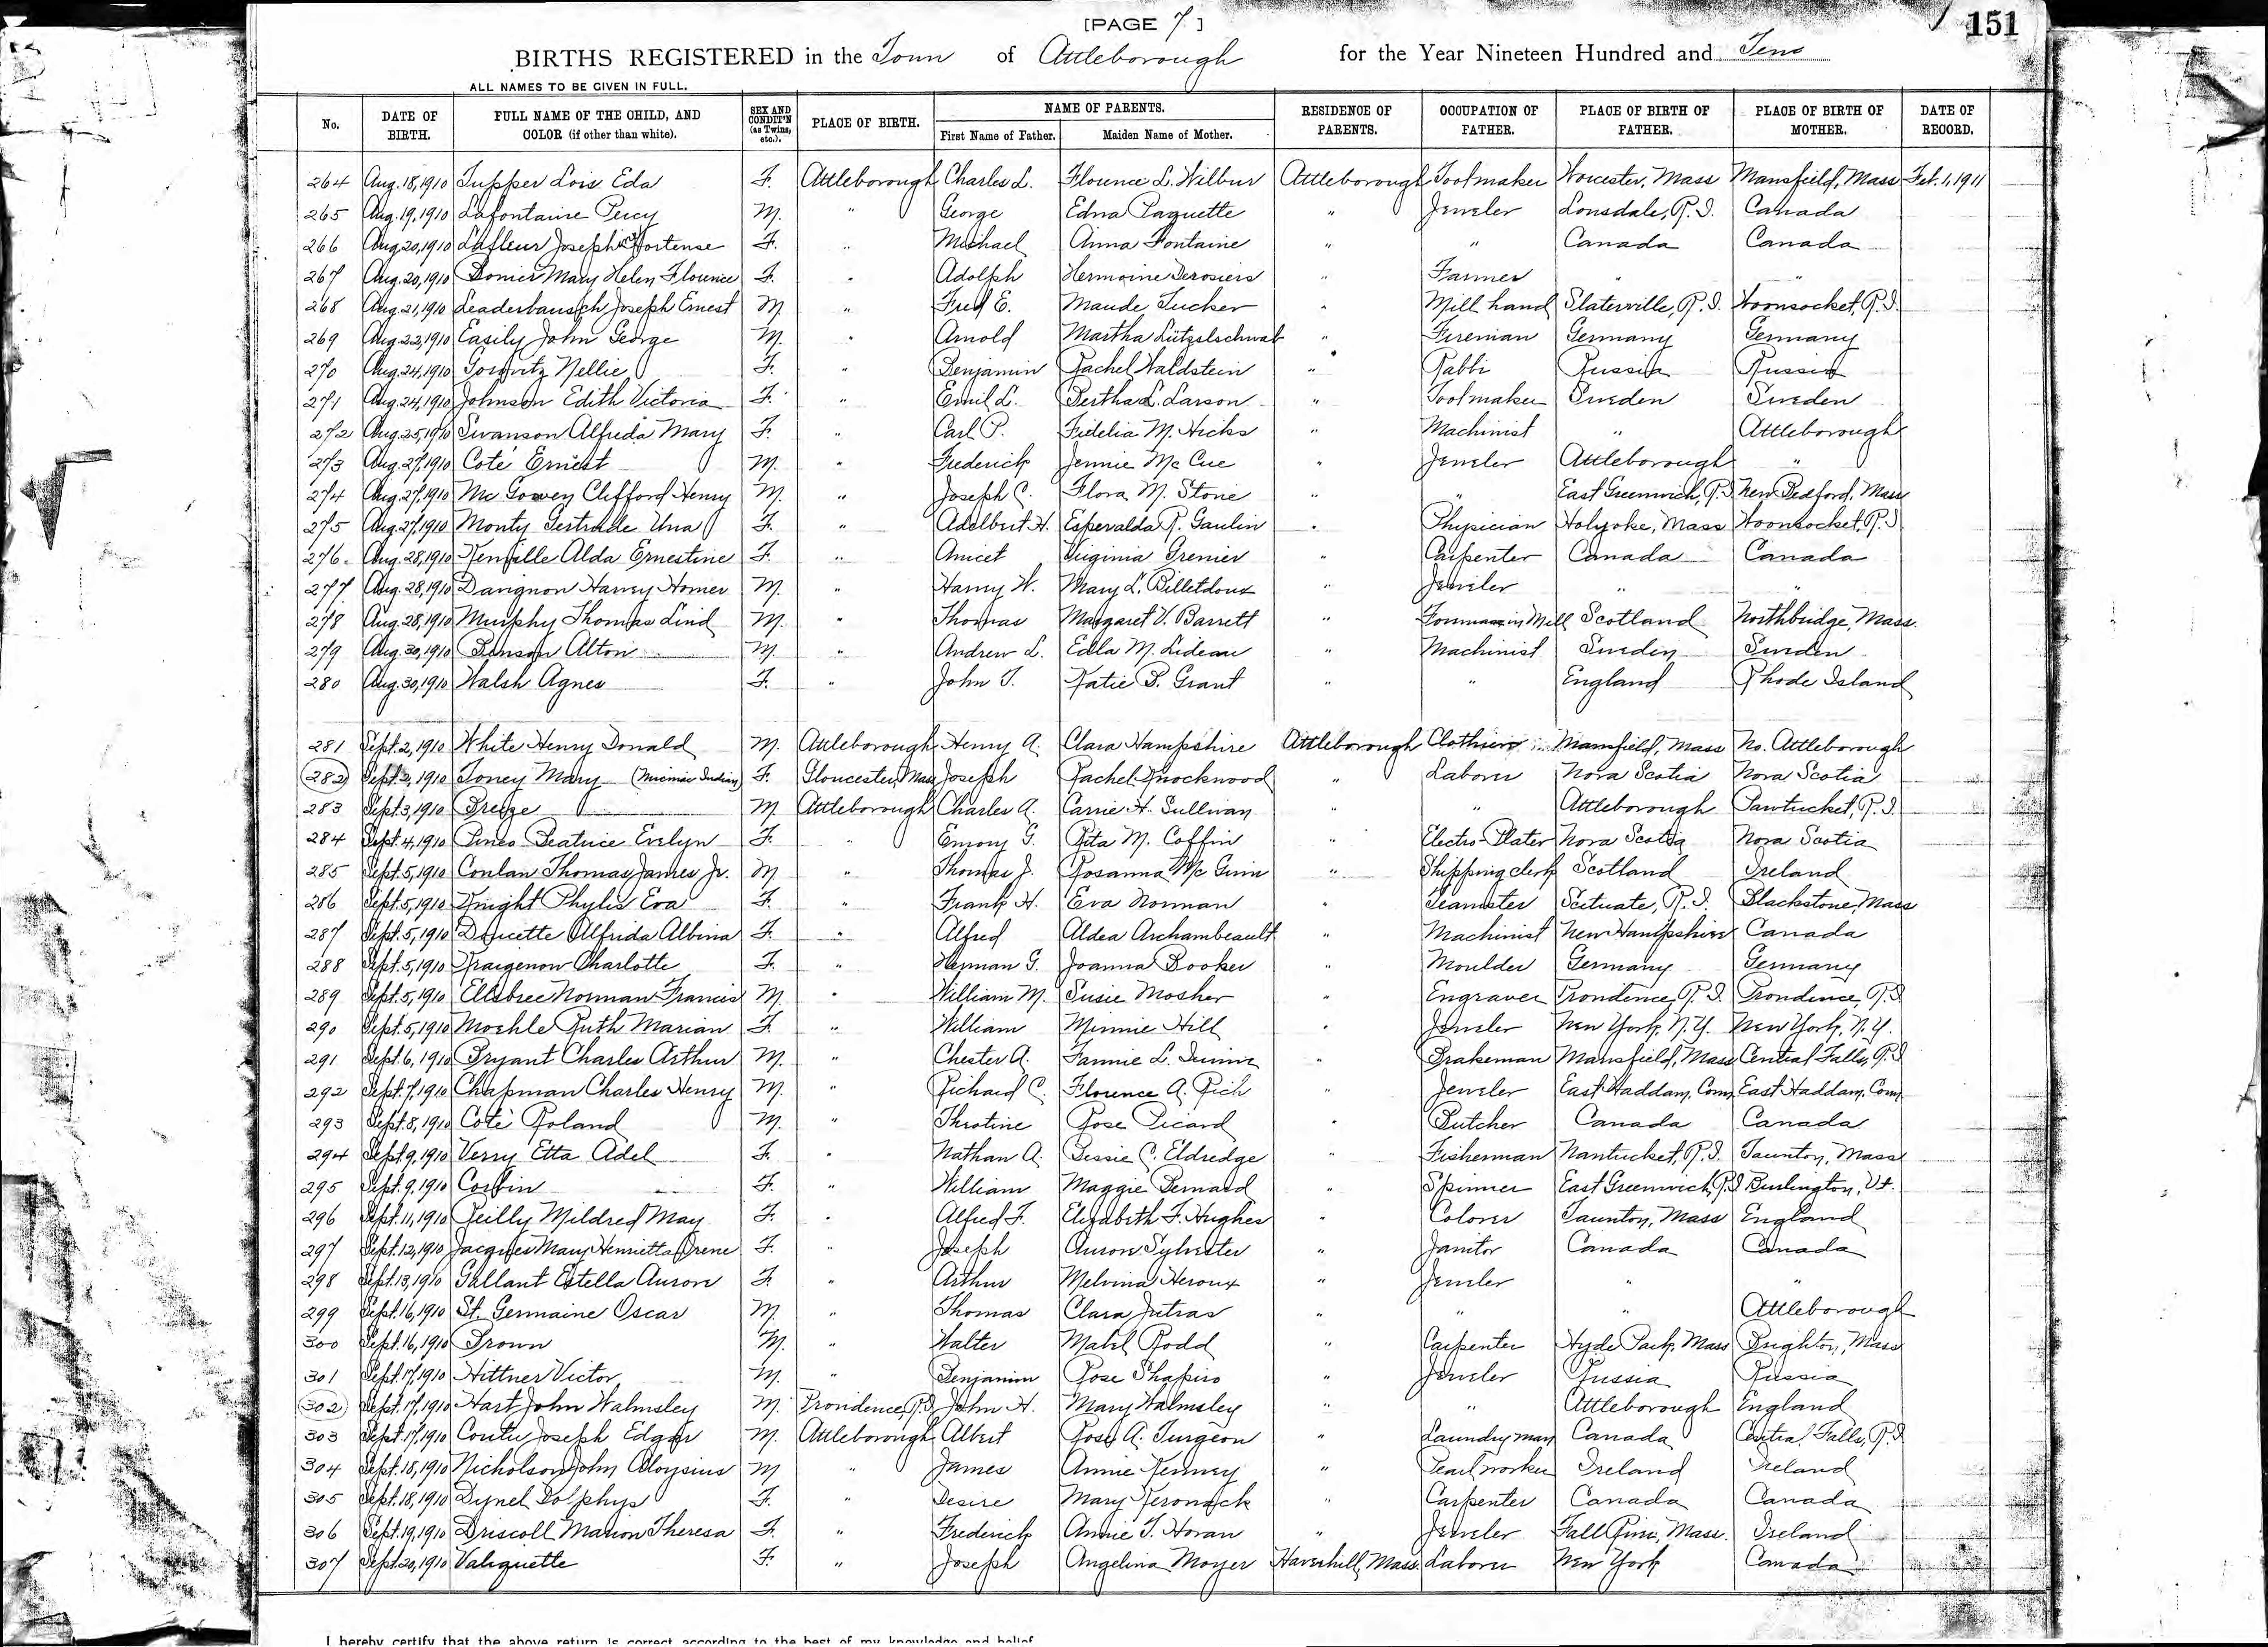 [PAGE 7]
151
BIRTHS REGISTERED in the Town of Attleborough for the Year Nineteen Hundred and Ten
ALL NAMES TO BE GIVEN IN FULL.
No. DATE OF BIRTH. FULL NAME OF THE CHILD, AND COLOR (if other than white). SEX AND CONDIT'N (as Twins, etc.). PLACE OF BIRTH. NAME OF PARENTS. First Name of Father. Maiden Name of Mother. RESIDENCE OF PARENTS. OCCUPATION OF FATHER. PLACE OF BIRTH OF FATHER. PLACE OF BIRTH OF MOTHER. DATE OF RECORD.
264 Aug. 18, 1910 Tupper Lois Eda F. Attleborough Charles L. Florence L. Wilbur Attleborough Toolmaker Worcester, Mass Mansfield, Mass Feb. 1, 1911
265 Aug. 19, 1910 Lafontaine Percy M. " George Edna Paquette " Jeweler Lonsdale, R.I. Canada
266 Aug. 20, 1910 Lafleur Joseph Hortense F. " Michael Anna Fontaine " " Canada Canada
267 Aug. 20, 1910 Mary Helen Florence F. " Adolph Hermoine Derosiers " Farmer " "
268 Aug. 21, 1910 Leaderbausch Joseph Ernest M. " Fred E. Maude Tucker " Mill hand Slaterville, R.I. Woonsocket, R.I.
269 Aug. 22, 1910 Easily John George M. " Arnold Martha Lützelschwab " Fireman Germany Germany
270 Aug. 24, 1910 Gorovitz Nellie F. " Benjamin Rachel Waldstein " Rabbi Russia Russia
271 Aug. 24, 1910 Johnson Edith Victoria F. " Emil L. Bertha L. Larson " Toolmaker Sweden Sweden
272 Aug. 25, 1910 Swanson Alfreda Mary F. " Carl P. Fidelia M. Hicks " Machinist " Attleborough
273 Aug. 27, 1910 Coté Ernest M. " Frederick Jennie McCue " Jeweler Attleborough "
274 Aug. 27, 1910 McGowen Clifford Henry M. " Joseph C. Flora M. Stone " " East Greenwich, R.I. New Bedford, Mass
275 Aug. 27, 1910 Monty Gertrude Una F. " Adelbert H. Esperalda R. Gaulin " Physician Holyoke, Mass Woonsocket, R.I.
276 Aug. 28, 1910 Renville Alda Ernestine F. " Amicet Virginia Grenier " Carpenter Canada Canada
277 Aug. 28, 1910 Davignon Harvey Homer M. " Harry W. Mary L. Billetdoux " Jeweler " "
278 Aug. 28, 1910 Murphy Thomas Lind M. " Thomas Margaret V. Barrett " Foreman in Mill Scotland Northbridge, Mass.
279 Aug. 30, 1910 Benson Alton M. " Andrew L. Edla M. Lideau " Machinist Sweden Sweden
280 Aug. 30, 1910 Walsh Agnes F. " John T. Katie B. Grant " " England Rhode Island
281 Sept. 2, 1910 White Henry Donald M. Attleborough Henry A. Clara Hampshire Attleborough Clothier Mansfield, Mass No. Attleborough
282 Sept. 2, 1910 Toney Mary (Micmac Indian) F. Gloucester, Mass Joseph Rachel Knockwood " Laborer Nova Scotia Nova Scotia
283 Sept. 3, 1910 Breeze M. Attleborough Charles A. Carrie H. Sullivan " " Attleborough Pawtucket, R.I.
284 Sept. 4, 1910 Pineo Beatrice Evelyn F. " Emory G. Rita M. Coffin " Electro-Plater Nova Scotia Nova Scotia
285 Sept. 5, 1910 Conlan Thomas James Jr. M " Thomas J. Rosanna McGinn " Shipping clerk Scotland Ireland
286 Sept. 5, 1910 Knight Phylis Eva F. " Frank H. Eva Norman " Teamster Scituate, R.I. Blackstone, Mass
287 Sept. 5, 1910 Doucette Alfrida Albina F. " Alfred Aldea Archambeault " Machinist New Hampshire Canada
288 Sept. 5, 1910 Kraigenow Charlotte F. " Herman G. Joanna Booker " Moulder Germany Germany
289 Sept. 5, 1910 Ellsbree Norman Francis M. " William M. Susie Mosher " Engraver Providence, R.I. Providence, R.I.
290 Sept. 5, 1910 Moehle Ruth Marian F. " William Minnie Hill " Jeweler New York, N.Y. New York, N.Y.
291 Sept. 6, 1910 Bryant Charles Arthur M. " Chester A. Fannie L. " Brakeman Mansfield, Mass Central Falls, R.I.
292 Sept. 7, 1910 Chapman Charles Henry M. " Richard C. Florence A. Rich " Jeweler East Haddam, Conn East Haddam, Conn
293 Sept. 8, 1910 Coté Roland M. " Throtine Rose Picard " Butcher Canada Canada
294 Sept. 9, 1910 Verry Etta Adel F. " Nathan A. Bessie C. Eldredge " Fisherman Nantucket, R.I. Taunton, Mass
295 Sept. 9, 1910 Corbin F. " William Maggie Bernard " Spinner East Greenwich, R.I. Burlington, Vt.
296 Sept. 11, 1910 Reilly Mildred May F. " Alfred F. Elizabeth F. Hughes " Colorer Taunton, Mass England
297 Sept. 12, 1910 Jacques Mary Henrietta Irene F. " Joseph Auron Sylvester " Janitor Canada Canada
298 Sept. 13, 1910 Gallant Estella Auron F. " Arthur Melvina Heroux " Jeweler " "
299 Sept. 16, 1910 St. Germaine Oscar M. " Thomas Clara Jutras " " " Attleborough
300 Sept. 16, 1910 Brown M. " Walter Mabel Rodd " Carpenter Hyde Park, Mass Brighton, Mass
301 Sept. 17, 1910 Hittner Victor M. " Benjamin Rose Shapiro " Jeweler Russia Russia
302 Sept. 17, 1910 Hart John Walmsley M. Providence, R.I. John H. Mary Walmsley " " Attleborough England
303 Sept. 17, 1910 Coutu Joseph Edgar M. Attleborough Albert Rose A. Turgeon " Laundryman Canada Central Falls, R.I.
304 Sept. 18, 1910 Nicholson John Aloysius M " James Annie Kenney " Pearl worker Ireland Ireland
305 Sept. 18, 1910 Dynel Dolphys F. " Desire Mary Keronack " Carpenter Canada Canada
306 Sept. 19, 1910 Driscoll Marion Theresa F. " Frederick Annie T. Horan " Jeweler Fall River, Mass. Ireland
307 Sept. 20, 1910 Valiquette F. " Joseph Angelina Moyer Haverhill, Mass. Laborer New York Canada
I hereby certify that the above return is correct according to the best of my knowledge and belief